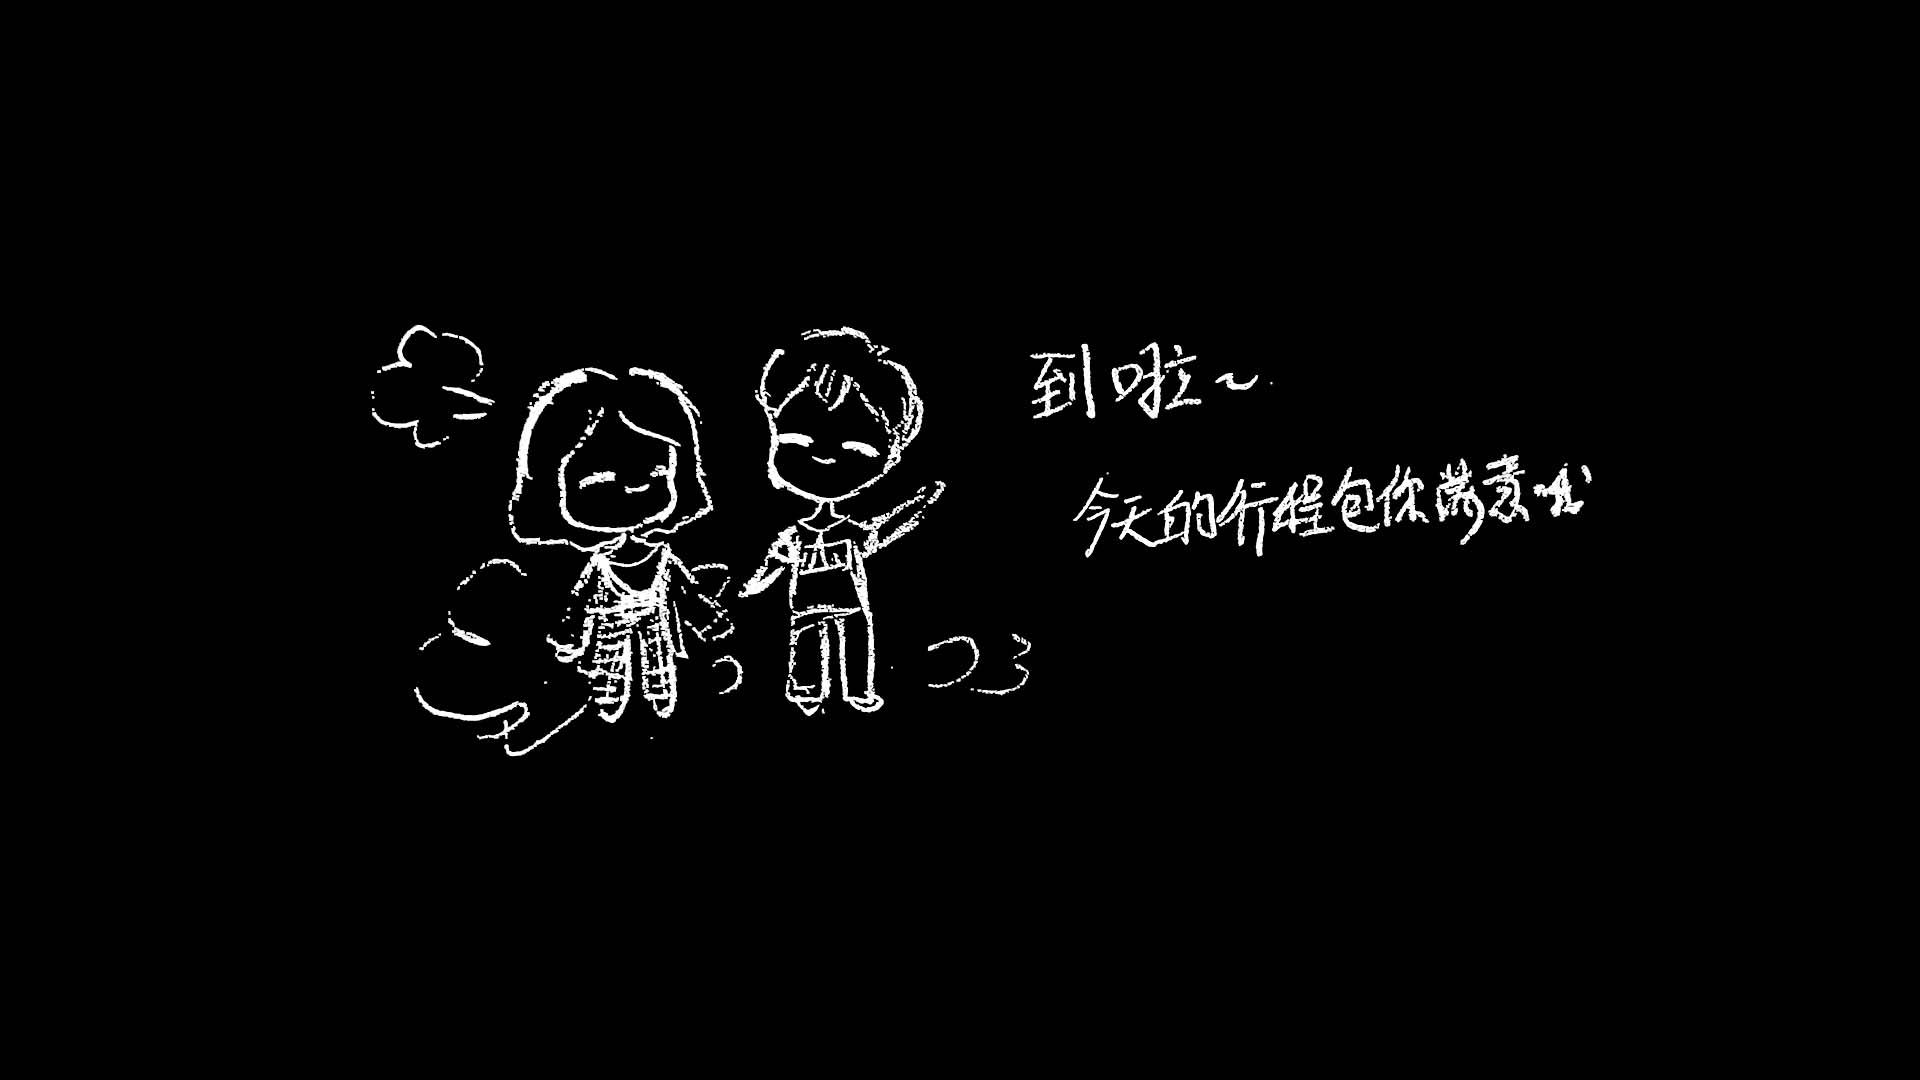 到啦~
今天的行程包你满意哦